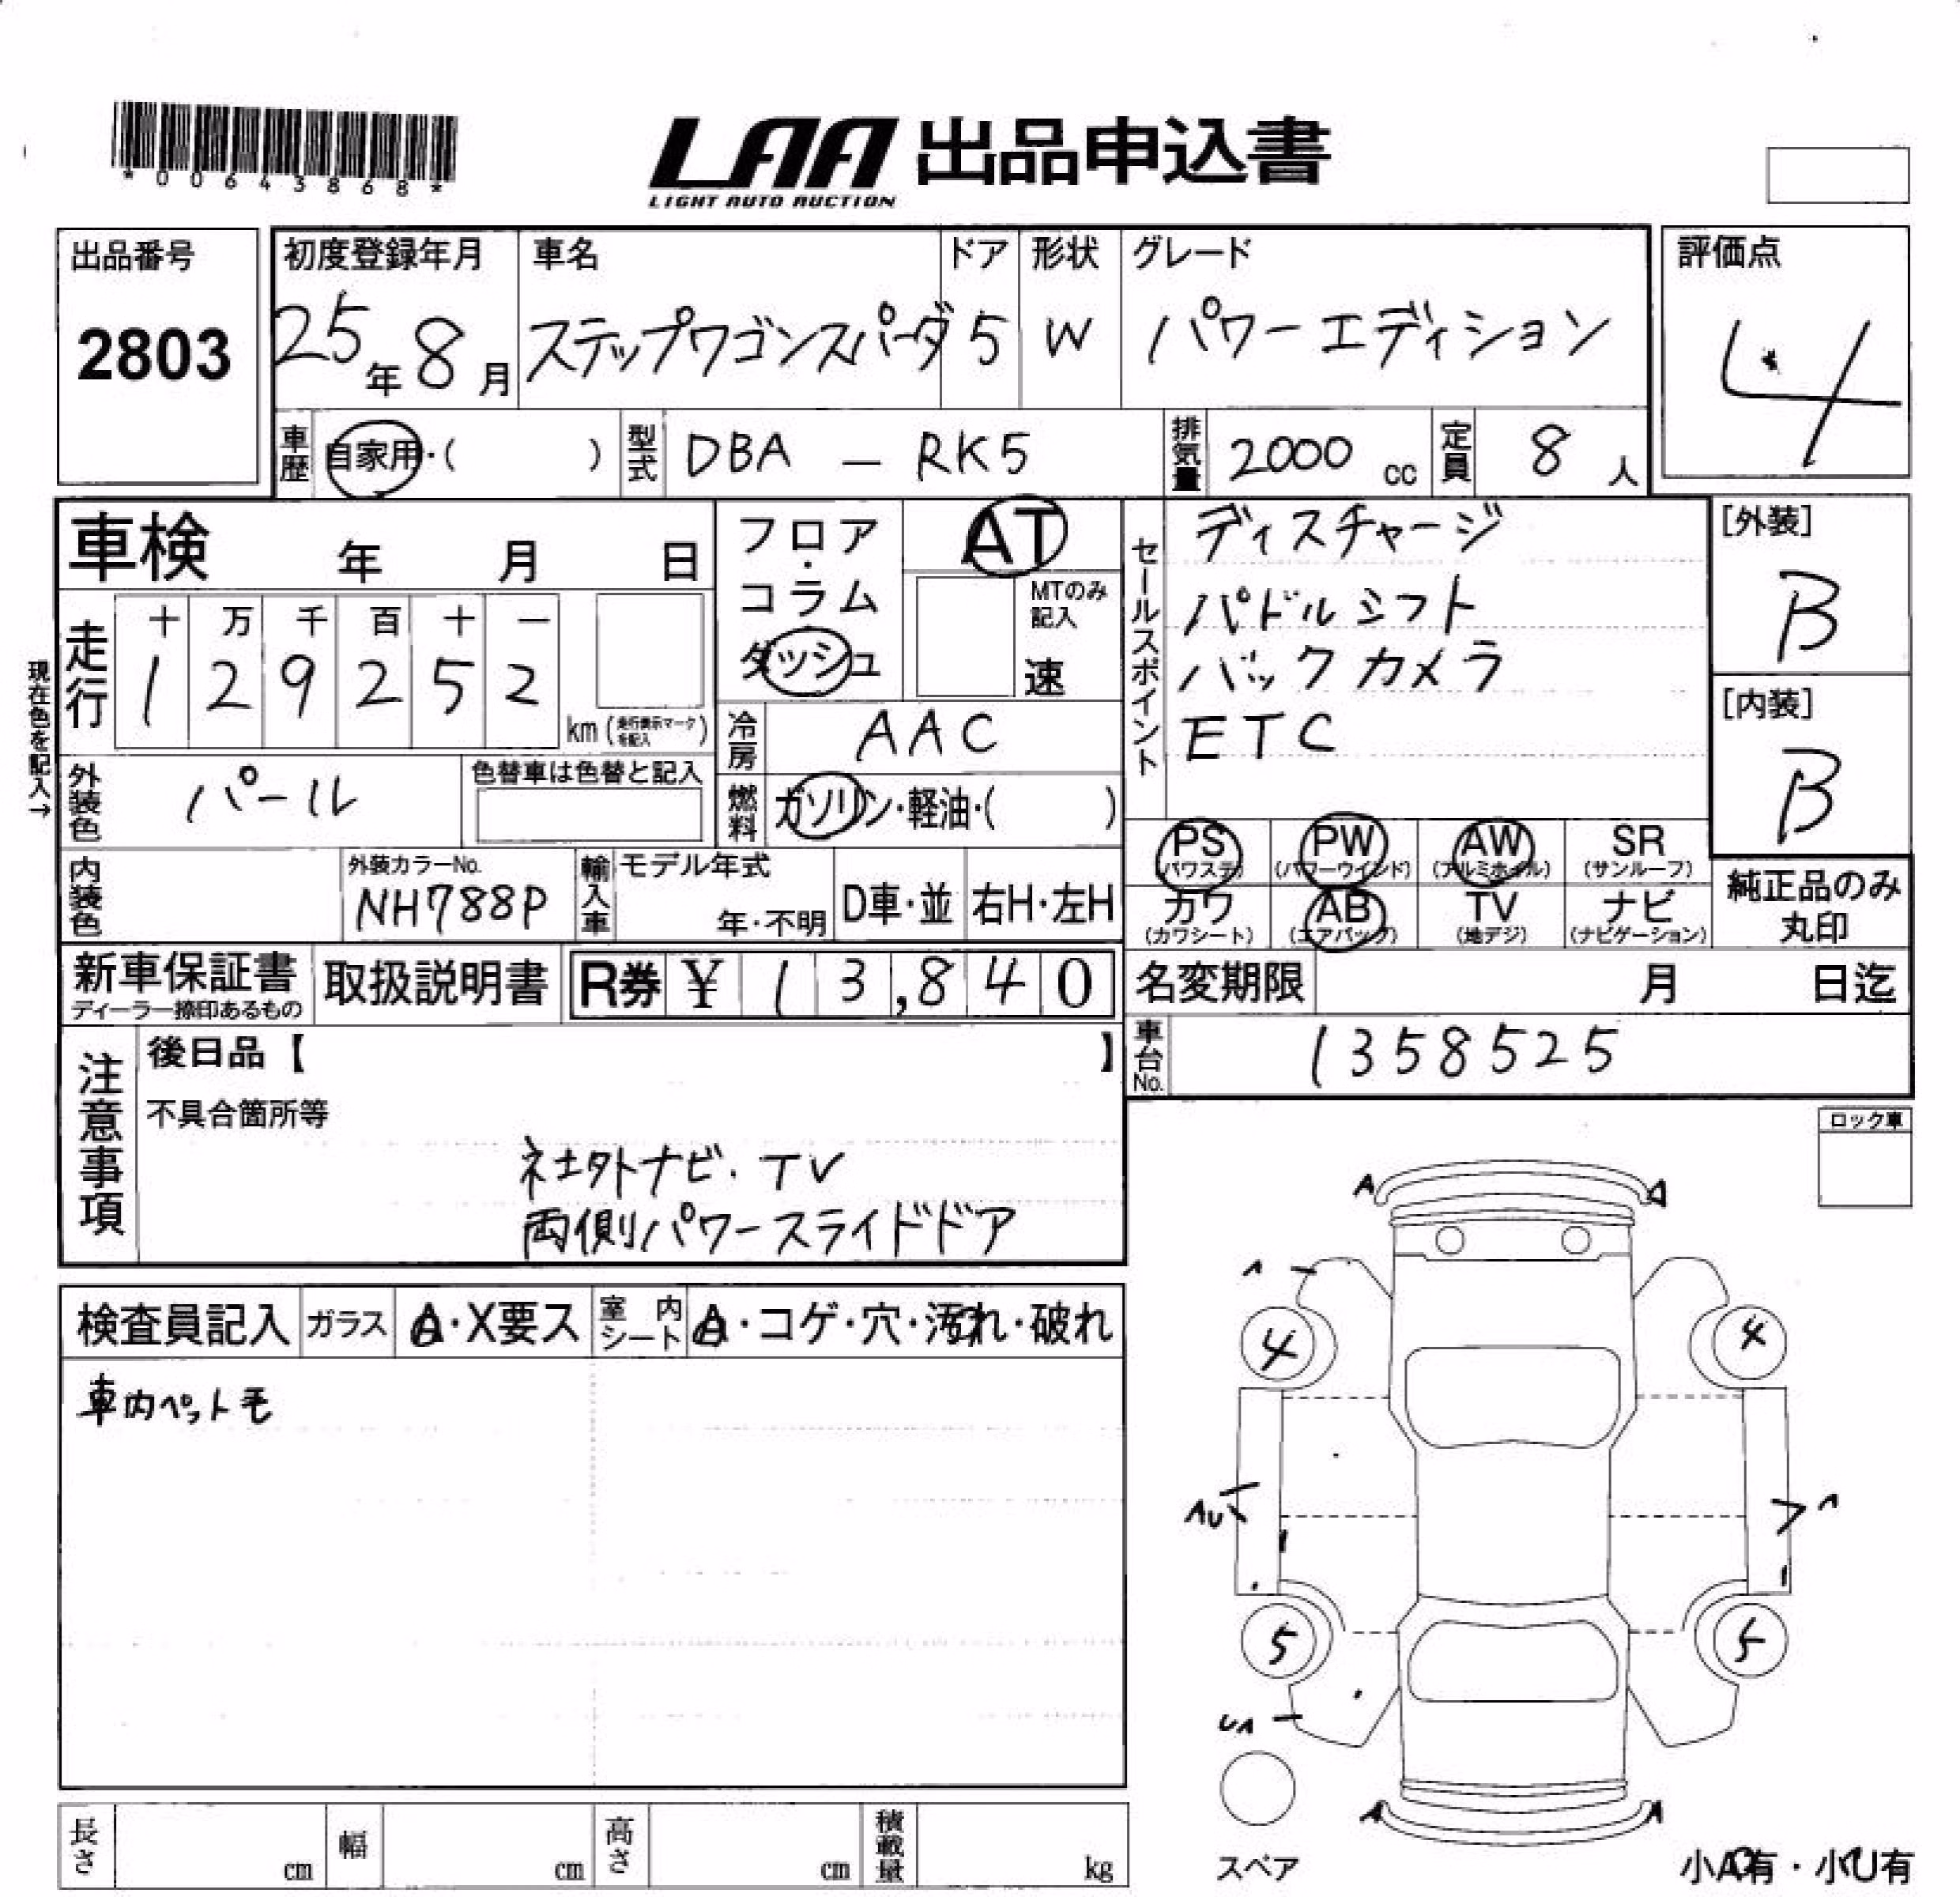 *00643868*
LAA 出品申込書
LIGHT AUTO AUCTION
出品番号
2803
初度登録年月
25年8月
車名
ステップワゴンスパーダ
ドア
5
形状
W
グレード
パワーエディション
評価点
4
車歴 自家用・( )
型式 DBA - RK5
排気量 2000 cc
定員 8 人
車検 年 月 日
フロア・コラム
ダッシュ
AT
MTのみ記入
速
セールスポイント
ディスチャージ
パドルシフト
バックカメラ
ETC
[外装]
B
[内装]
B
現在色を記入→
走行
十 万 千 百 十 一
1 2 9 2 5 2
km (走行表示マークを記入)
冷房 AAC
外装色 パール
色替車は色替と記入
燃料 ガソリン・軽油・( )
PS (パワステ)
PW (パワーウインド)
AW (アルミホイル)
SR (サンルーフ)
カワ (カワシート)
AB (エアバッグ)
TV (地デジ)
ナビ (ナビゲーション)
純正品のみ丸印
内装色
外装カラーNo.
NH788P
輸入車
モデル年式
年・不明
D車・並
右H・左H
新車保証書
ディーラー捺印あるもの
取扱説明書
R券 ¥ 13,840
名変期限 月 日迄
車台No. 1358525
注意事項
後日品【 】
不具合箇所等
社外ナビ・TV
両側パワースライドドア
ロック車
検査員記入
ガラス A・X要ス
室内シート A・コゲ・穴・汚れ・破れ
車内ペット毛
A A
4 4
5 5
A A
スペア
小A有・小U有
長さ cm
幅 cm
高さ cm
積載量 kg